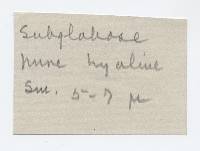 Subglobose
hyaline
Sm. 5-7 µ